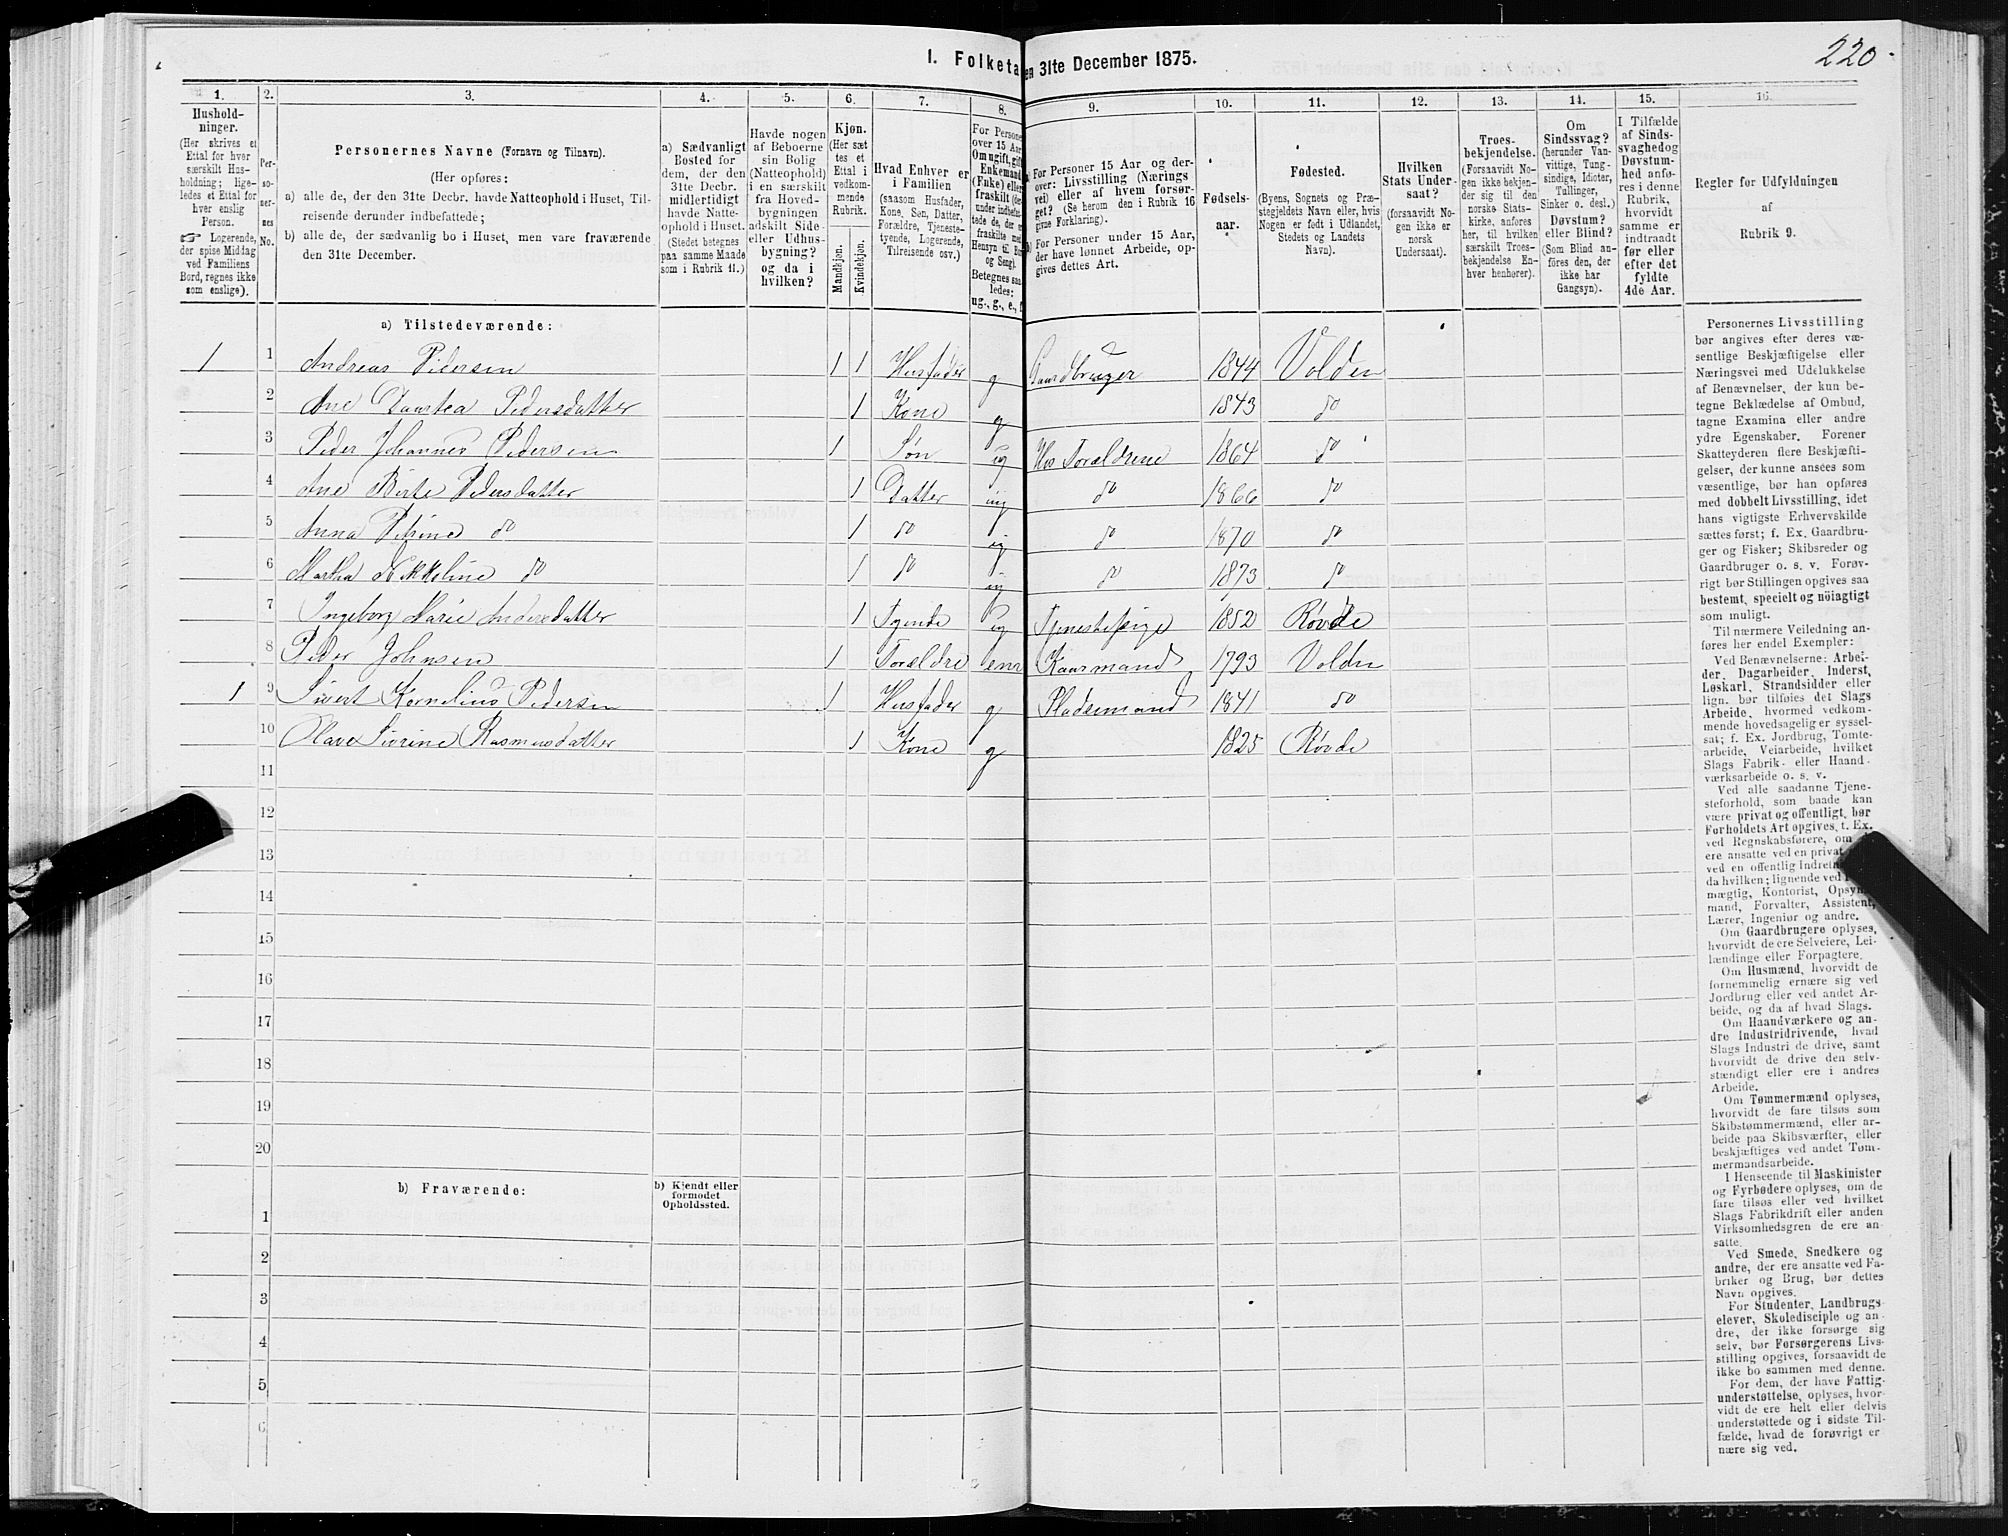 I. Folketa en 31te December 1875.
220
1. 2. 3. 4. 5. 6. 7. 8. 9. 10. 11. 12. 13. 14. 15. 16.
Hushold-
ninger.
(Her skrives et
Ettal for hver
særskilt Hus-
holdning; lige-
ledes et Ettal for
hver enslig
Person.
☞ Logerende,
der spise Middag
ved Familiens
Bord, regnes ikke
som enslige).
Per-
so-
ner-
nes
No.
Personernes Navne (Fornavn og Tilnavn).
(Her opføres:
a) alle de, der den 31te Decbr. havde Natteophold i Huset, Til-
reisende derunder indbefattede;
b) alle de, der sædvanlig bo i Huset, men vare fraværende
den 31te December.
a) Sædvanligt
Bosted for
dem, der den
31te Decbr.
midlertidigt
havde Natte-
ophold i Huset.
(Stedet betegnes
paa samme Maade
som i Rubrik 11.)
Havde nogen
af Beboerne
sin Bolig
(Natteophold)
i en særskilt
fra Hoved-
bygningen
adskilt Side-
eller Udhus-
bygning?
og da i
hvilken?
Kjøn.
(Her sæt
tes et
Ettal i
vedkom-
mende
Rubrik.
Mandkjøn.
Kvindekjøn.
Hvad Enhver er
i Familien
(saasom Husfader,
Kone, Søn, Datter,
Forældre, Tjeneste-
tyende, Logerende,
Tilreisende osv.)
For Persone
over 15 Aar
Om ugift, gift
Enkemand
(Enke) eller
fraskilt (der
under indbefat-
tede de, der e
fraskilte med
Hensyn til Bor
og Seng).
Betegnes saa
ledes:
ug., g., e., f
a) For Personer 15 Aar og der-
over: Livsstilling (Nærings
vei) eller af hvem forsør-
get? (Se herom den i Rubrik 16
givne Forklaring).
b) For Personer under 15 Aar,
der have lønnet Arbeide, op-
gives dettes Art.
Fødsels-
aar.
Fødested.
(Byens, Sognets og Præ-
stegjeldets Navn eller, hvis
Nogen er født i Udlandet,
Stedets og Landets
Navn).
Hvilken
Stats Under-
saat?
(forsaavidt No-
gen ikke er
norsk
Undersaat).
Troes-
bekjendelse.
(Forsaavidt No-
gen ikke bekjen-
der sig til den
norske Stats-
kirke, anføres
her, til hvilken
særskilt Troes-
bekjendelse En-
hver henhører).
Om
Sindssvag?
(herunder Van-
vittige, Tung-
sindige, Idioter,
Tullinger,
Sinker o. desl.)
Døvstum?
eller Blind?
(Som Blind an-
føres den, der
ikke har
Gangsyn).
I Tilfælde
af Sinds-
svaghedog
Døvstum-
hed anfø-
res i denne
Rubrik,
hvorvidt
samme er
indtraadt
før eller
efter det
fyldte
4de Aar.
Regler for Udfyldningen
af
Rubrik 9.
a) Tilstedeværende:
1 1 Andreas Pedersen 1 1 Husfader g Gaardbruger 1844 Volden
2 Ane Daartea Pedersdatter 1 Kone g 1843 do
3 Peder Johannes Pedersen 1 Søn ug Hos Forældrene 1864 do
4 Ane Birte Pedersdatter 1 Datter ug do 1866 do
5 Anna Petrine do 1 do ug do 1870 do
6 Martha Nikkeline do 1 do ug do 1873 do
7 Ingeborg Marie Andersdatter 1 Tyende ug Tjenestepige 1852 Røvde
8 Peder Johnsen 1 Forældre enr Kaarmand 1793 Volden
1 9 Sivert Kornelius Pedersen 1 Husfader g Pladsemand 1841 do
10 Olave Sivrine Rasmusdatter 1 Kone g 1825 Røvde
11
12
13
14
15
16
17
18
19
20
b) Fraværende:
b) Kjendt eller
formodet
Opholdssted.
1
2
3
4
5
6
Personernes Livsstilling
bør angives efter deres væ-
sentlige Beskjæftigelse eller
Næringsvei med Udelukkelse
af Benævnelser, der kun be-
tegne Beklædelse af Ombud,
tagne Examina eller andre
ydre Egenskaber. Forener
Skatteyderen flere Beskjæfti-
gelser, der kunne ansees som
væsentlige, bør han opføres
med dobbelt Livsstilling, idet
hans vigtigste Erhvervskilde
sættes først; f. Ex. Gaardbru-
ger og Fisker; Skibsreder og
Gaardbruger o. s. v. Forøv-
rigt bør Stillingen opgives saa
bestemt, specielt og nöiagtigt
som muligt.
Til nærmere Veiledning an-
føres her endel Exempler:
Ved Benævnelserne: Arbei-
der, Dagarbeider, Inderst,
Løskarl, Strandsidder eller
lign. bør tilføies det Slags
Arbeide, hvormed vedkom-
mende hovedsagelig er syssel-
sat; f. Ex. Jordbrug, Tomte-
arbeide, Veiarbeide, hvilket
Slags Fabrik- eller Haand-
værksarbeide o. s. v.
Ved alle saadanne Tjene-
steforhold, som baade kan
være privat og offentligt, bør
Forholdets Art opgives, f. Ex.
ved Regnskabsførere, om
ere ansatte ved en privat
ved en offentlig Indret
da hvilken; lignende ved
mægtig, Kontorist, Opsyn
mand, Forvalter, Assistent,
Lærer, Ingeniør og andre.
Om Gaardbrugere oplyses,
hvorvidt de ere Selveiere, Lei-
lændinge eller Forpagtere.
Om Husmænd, hvorvidt de
fornemmelig ernære sig ved
Jordbrug eller ved andet Ar-
beide, og da af hvad Slags.
Om Haandværkere og an-
dre Industridrivende, hvad
Slags Industri de drive, samt
hvorvidt de drive den selv-
stændigt eller ere i andres
Arbeide.
Om Tømmermænd oplyses,
hvorvidt de fare tilsøs som
Skibstømmermænd, eller ar-
beide paa Skibsværfter, eller
beskjæftiges ved andet Tøm-
mermandsarbeide.
I Henseende til Maskinister
og Fyrbødere oplyses, om de
fare tilsøs eller ved hvilket
Slags Fabrikdrift eller anden
Virksomhedsgren de ere an-
satte.
Ved Smede, Snedkere og
andre, der ere ansatte ved Fa-
briker og Brug, bør dettes
Navn opgives.
For Studenter, Landbrugs-
elever, Skoledisciple og an-
dre, der ikke forsørge sig
selv, bør Forsørgerens Livs-
stilling opgives, forsaavidt de
ikke bo sammen med denne.
For dem, der have Fattig-
understøttelse, oplyses, hvor-
vidt de ere helt eller delvis
understøttede og i sidste Til-
fælde, hvad de forøvrigt er
nære sig ved.